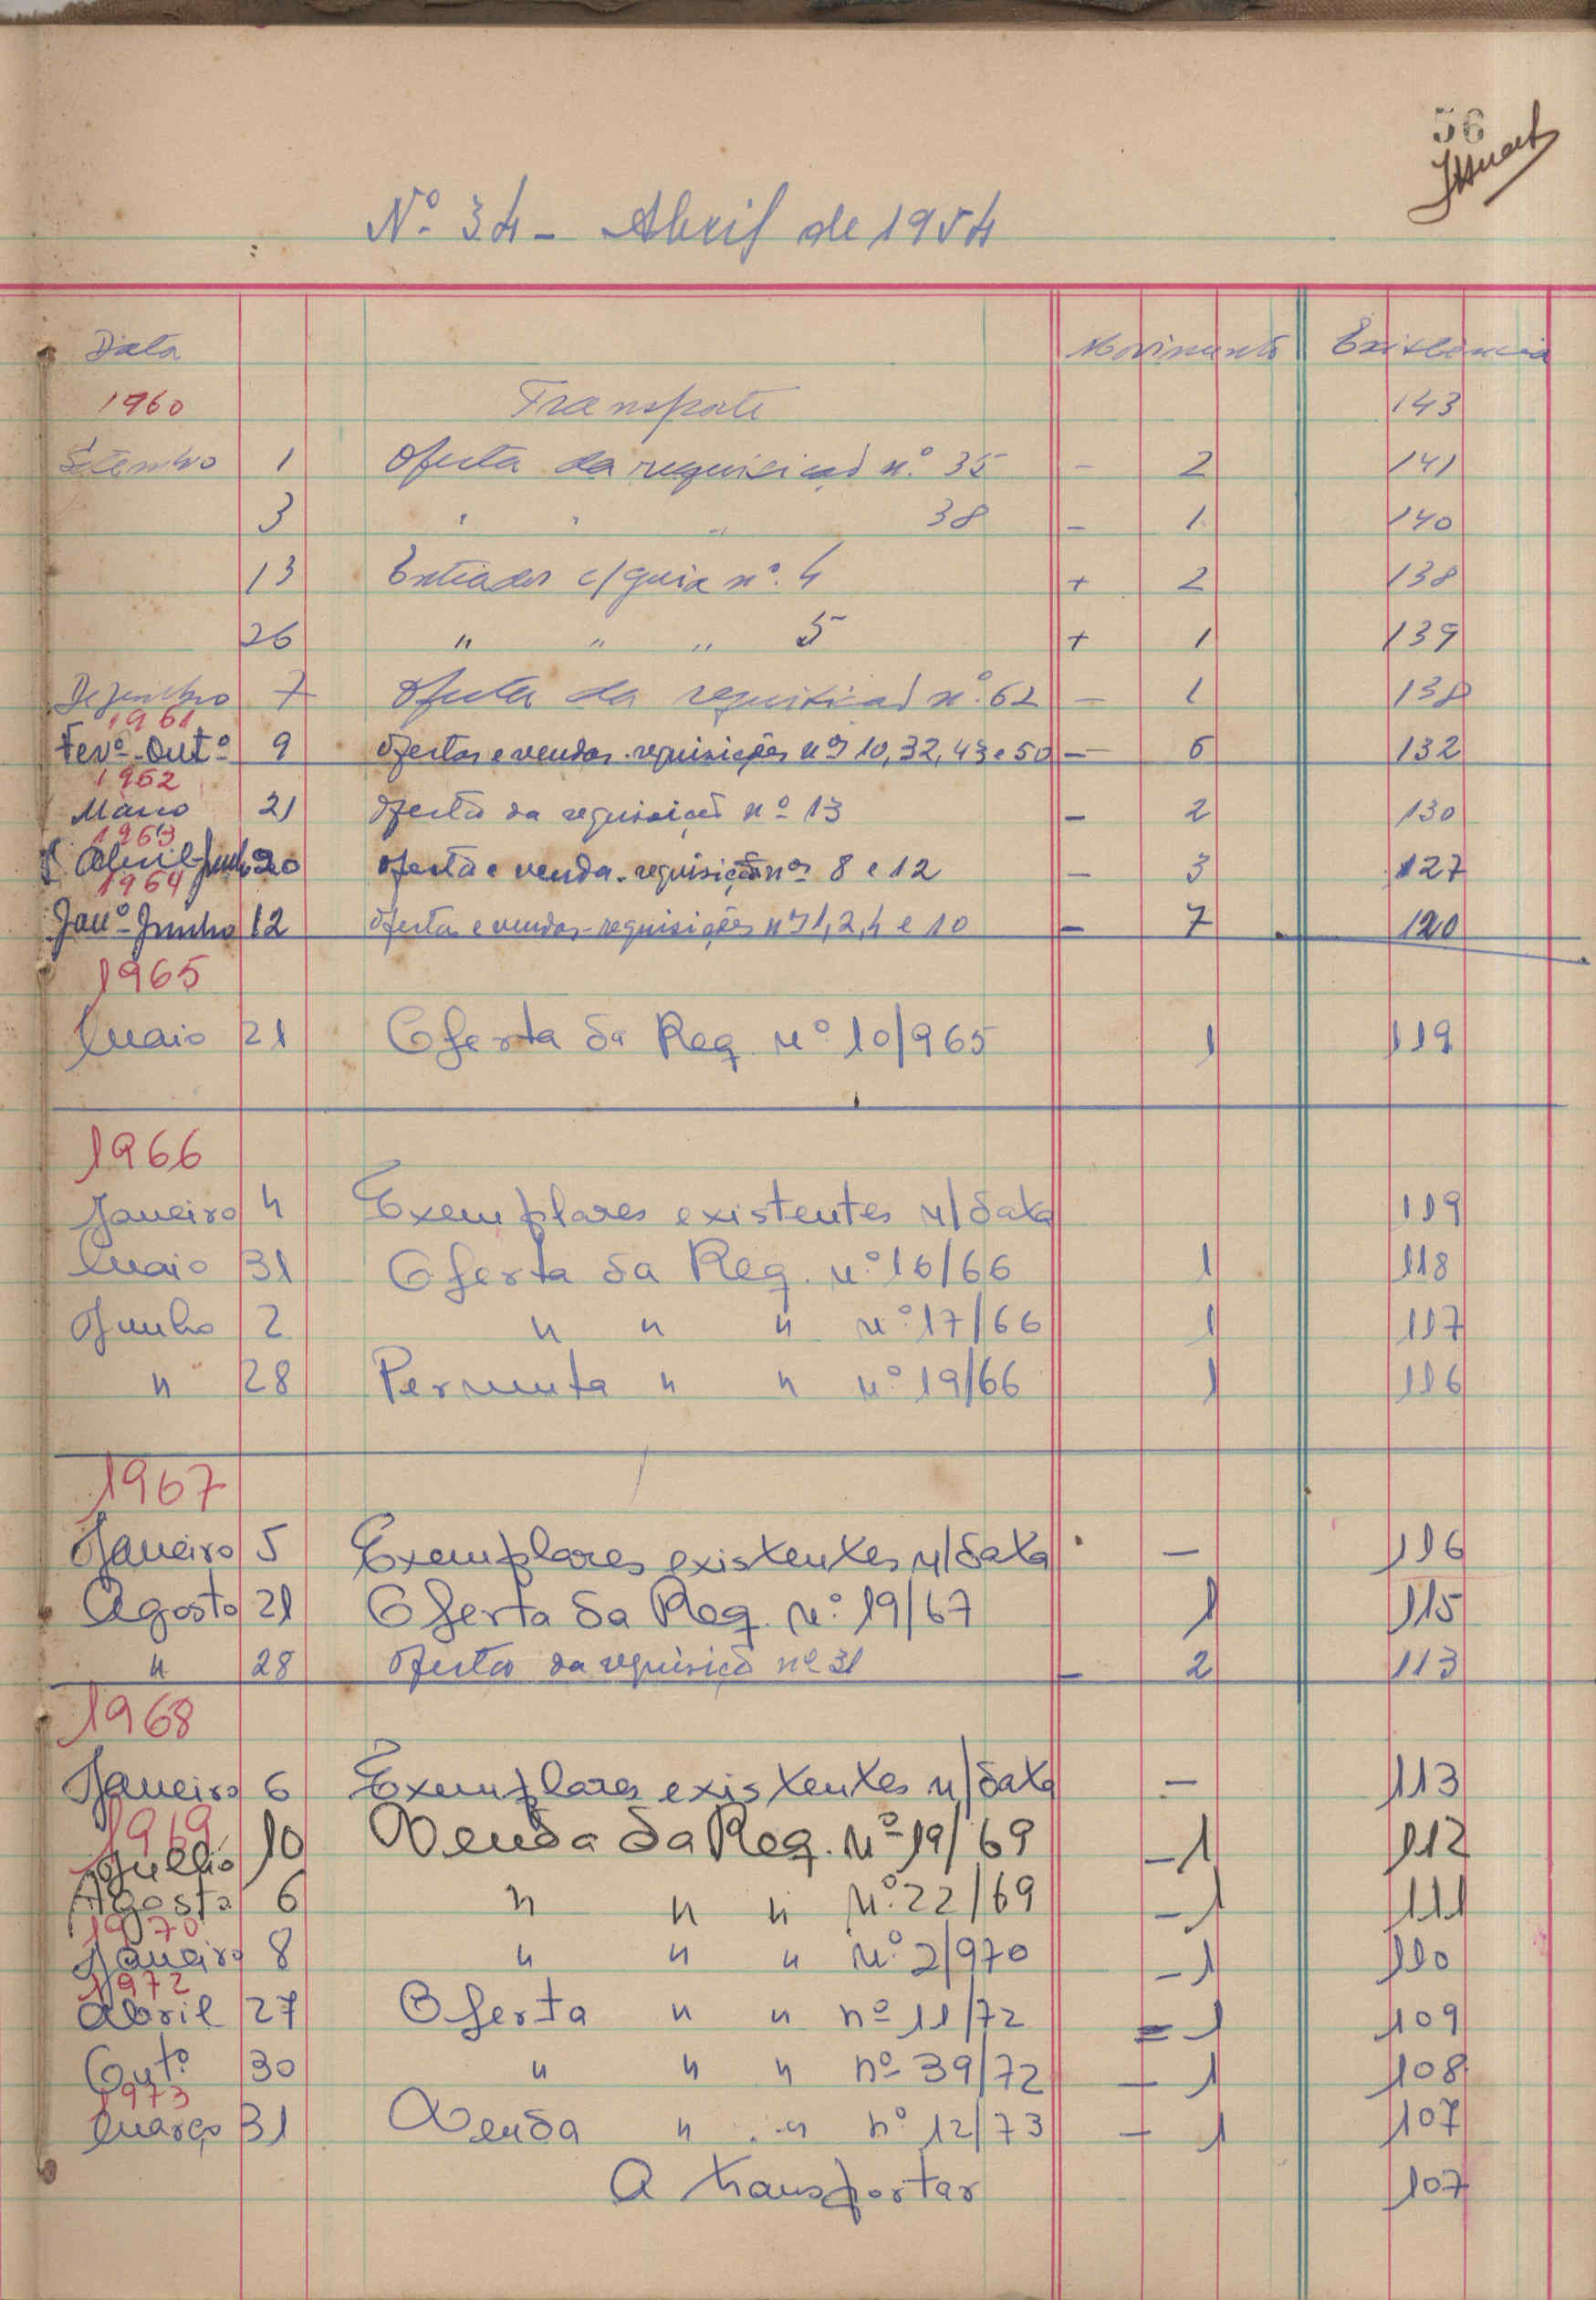 56
Nº 34 - Abril de 1954
Data Movimento Existencia
1960 Transporte 143
Setembro 1 Oferta da requisição n.º 35 - 2 141
3 " " " 38 - 1 140
13 Entradas c/ guia nº. 4 + 2 138
26 " " " 5 + 1 139
Dezembro 7 Oferta da requisição nº. 62 - 1 138
1961
Fevº-Outº 9 Ofertas e vendas-requisições nºs 10, 32, 43 e 50 - 6 132
1962
Março 21 Oferta da requisição nº 13 - 2 130
1963
Abril-Junho 20 Oferta e venda-requisição nºs 8 e 12 - 3 127
1964
Janº-Junho 12 Ofertas e vendas-requisições nºs 1, 2, 4 e 10 - 7 120
1965
Maio 21 Oferta da Req. nº 10/965 1 119
1966
Janeiro 4 Exemplares existentes n/data 119
Maio 31 Oferta da Req. nº 16/66 1 118
Junho 2 " " " nº 17/66 1 117
" 28 Permuta " " nº 19/66 1 116
1967
Janeiro 5 Exemplares existentes n/data - 116
Agosto 21 Oferta da Req. nº 19/67 1 115
" 28 Ofertas da requisição nº 31 - 2 113
1968
Janeiro 6 Exemplares existentes n/data - 113
1969
Julho 10 Venda da Req. nº 19/69 - 1 112
Agosto 6 " " " nº 22/69 - 1 111
1970
Janeiro 8 " " " nº 2/970 - 1 110
1972
Abril 27 Oferta " " nº 11/72 = 1 109
Outº 30 " " " nº 39/72 - 1 108
1973
Março 31 Venda " " nº 12/73 - 1 107
A transportar 107